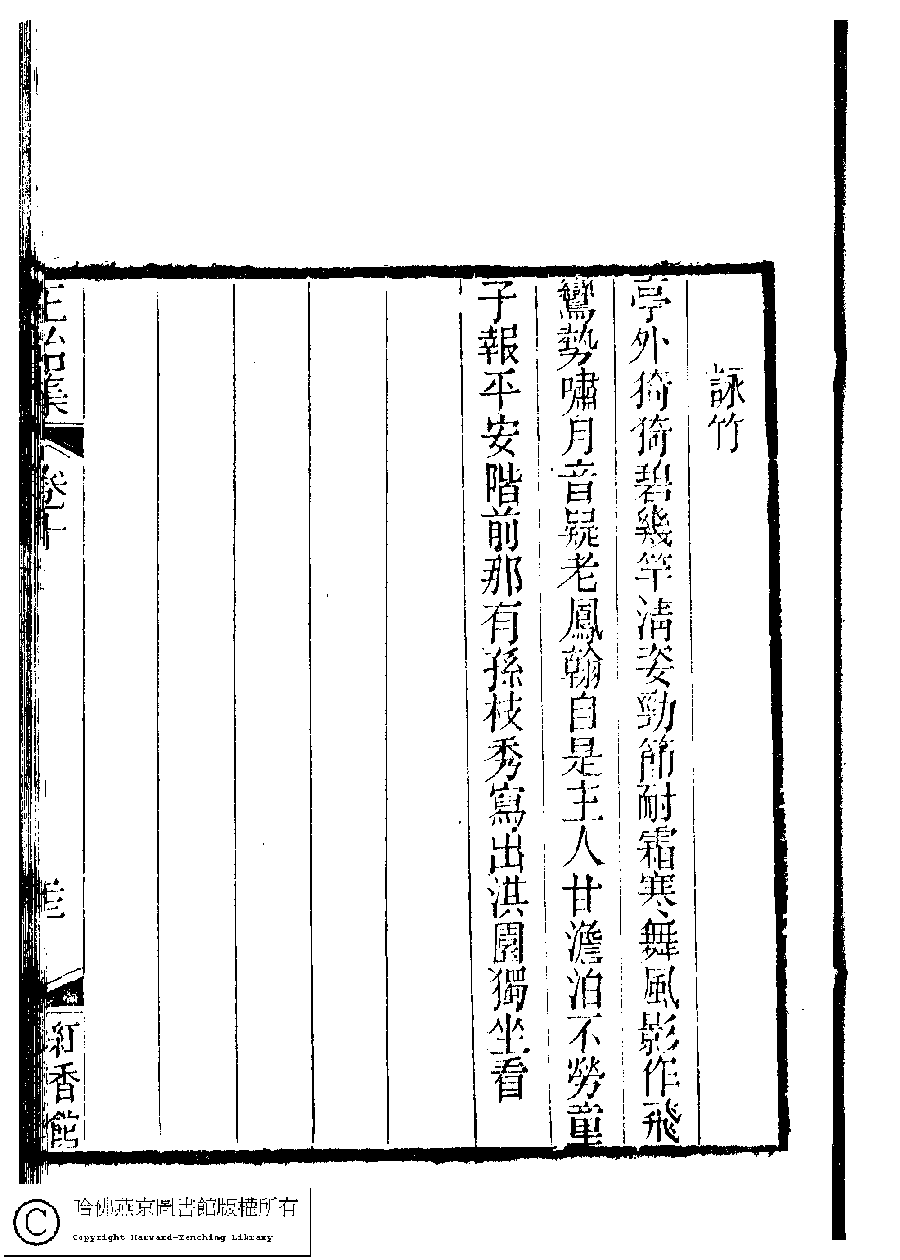 詠竹
亭外猗猗碧幾竿淸姿勁節耐霜寒舞風影作飛
鸞勢嘯月音疑老鳳翰自是主人甘澹泊不勞童
子報平安階前那有孫枝秀寫出淇園獨坐看
集
卷十
紅香館
哈佛燕京圖書館版權所有
Copyright Harvard-Yenching Library